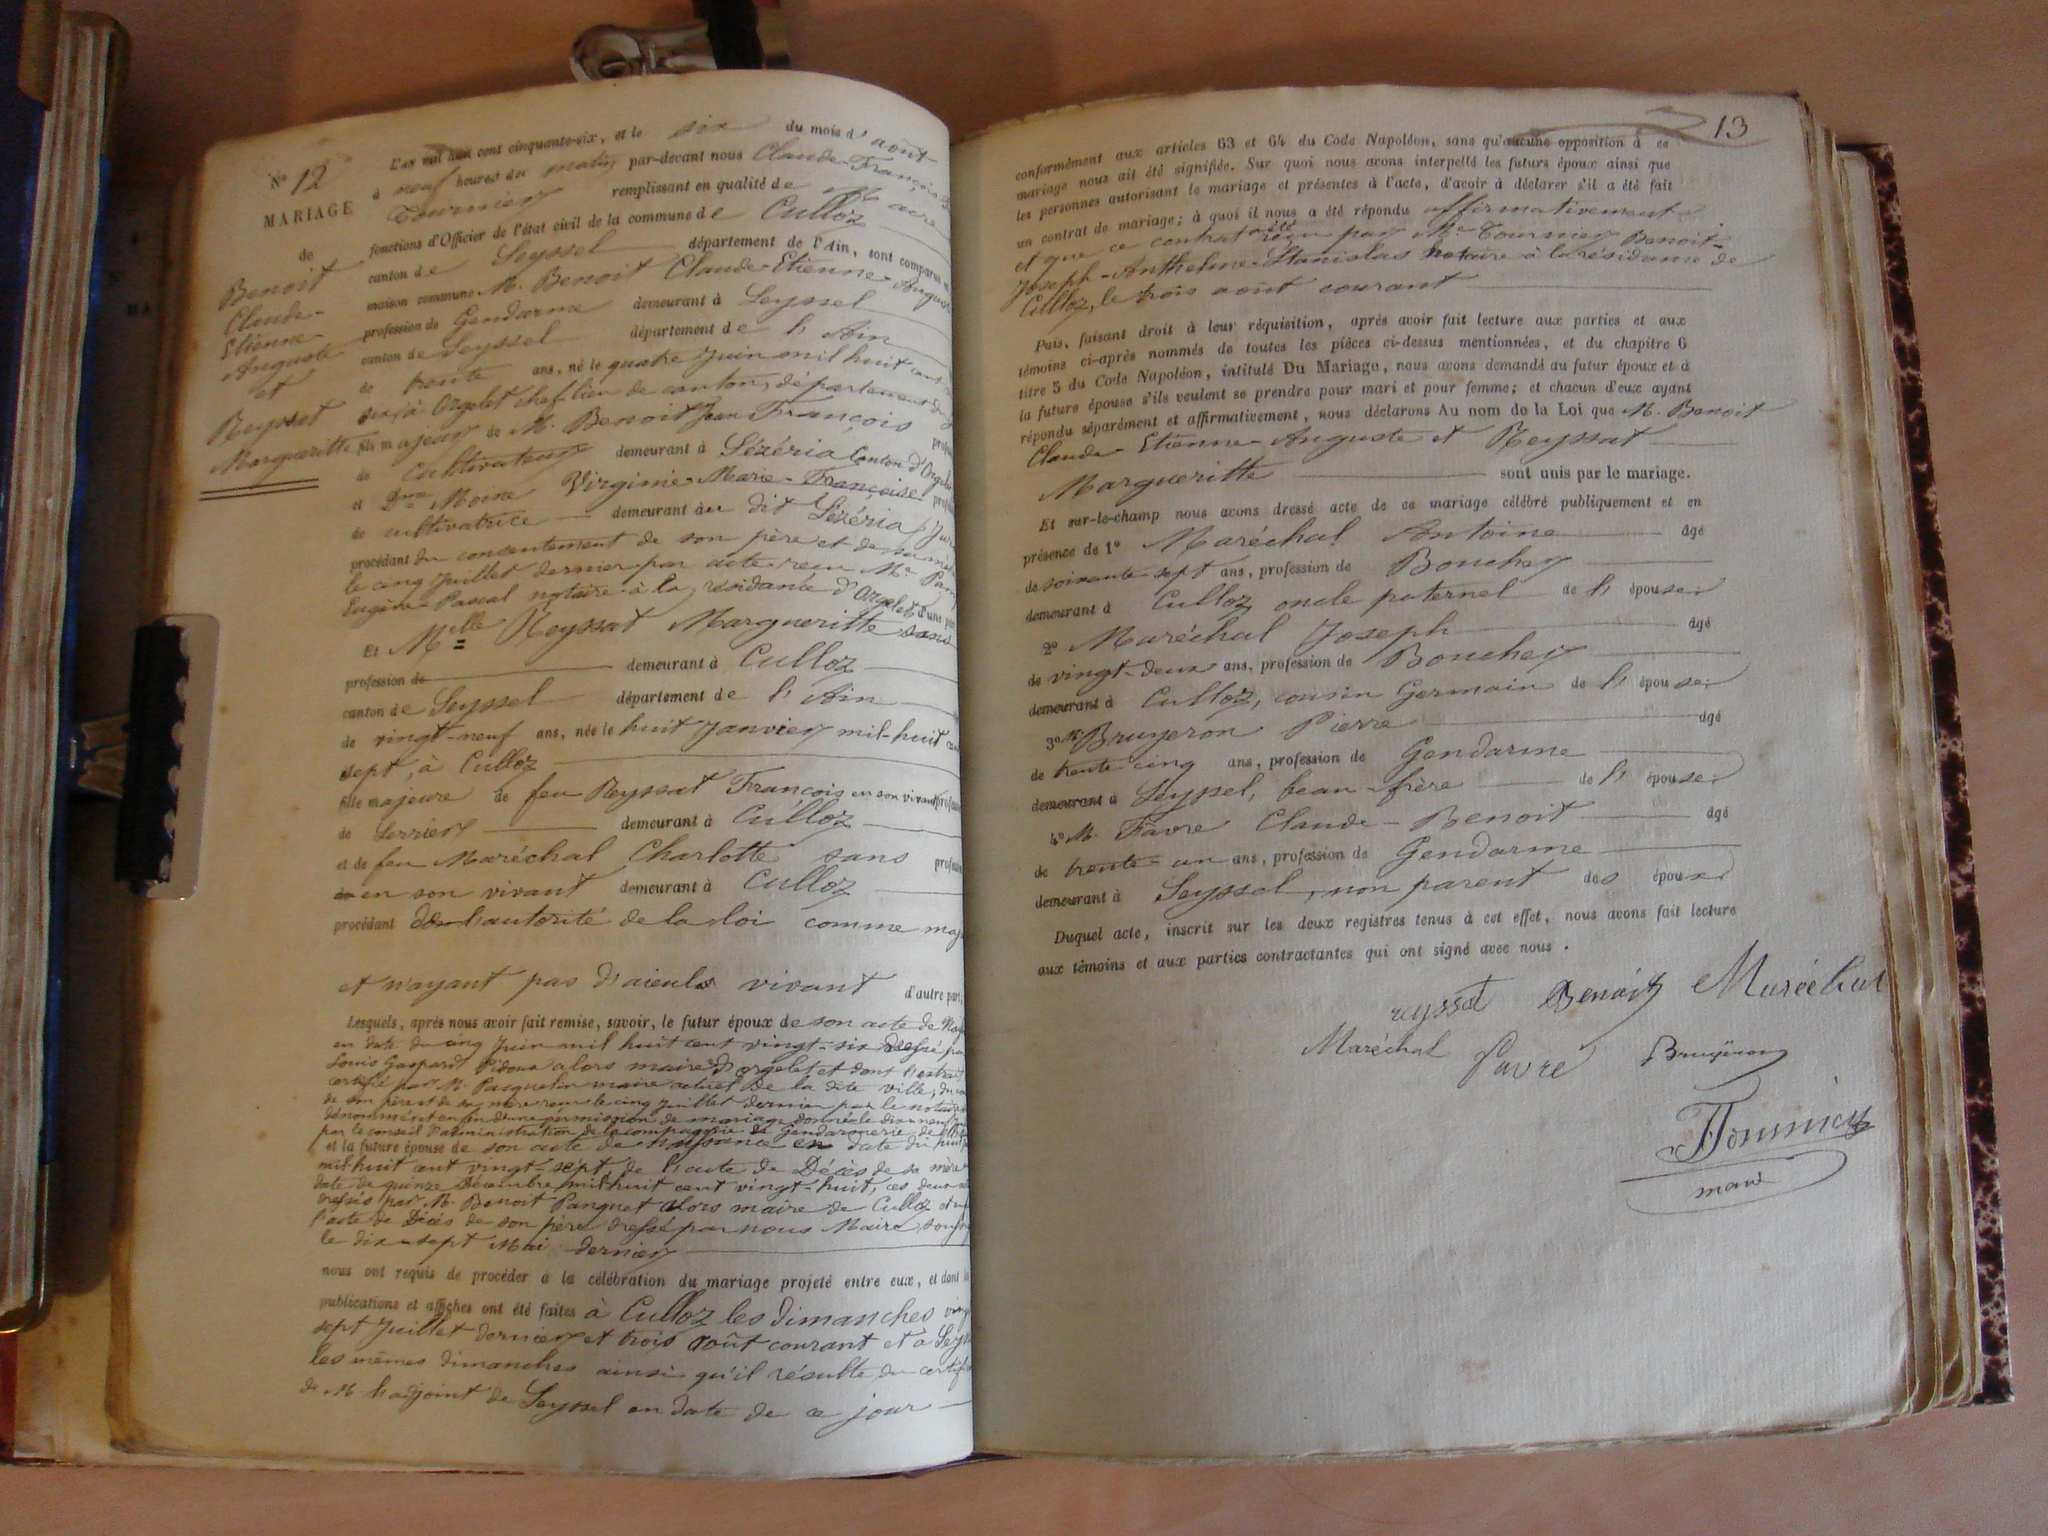 L'an mil huit cent cinquante-six, et le six du mois d'août
N° 12 à neuf heures du matin par-devant nous Claude-François
MARIAGE Tournier remplissant en qualité de Maire
fonctions d'Officier de l'état civil de la commune de Culloz
de
canton de Seyssel département de l'Ain, sont comparus
Benoit
Claude-
Etienne
Auguste
et
Reyssat
Margueritte
maison commune M. Benoit Claude-Etienne-August
profession de Gendarme demeurant à Seyssel
canton de Seyssel département de l'Ain
de trente ans, né le quatre Juin mil huit cent
six, à Orgelet chef lieu de canton, département du
fils majeur de M. Benoit Jean François
de Cultivateur demeurant à Sézéria Canton d'Orgelet
et Dme Moine Virginie-Marie-Françoise
de cultivatrice demeurant au dit Sézéria (Jura
procédant du consentement de son père et de sa mère
le cinq Juillet dernier par acte reçu Me
Eugène-Pascal notaire à la résidante d'Orgelet d'une part
Et Mlle Reyssat Margueritte sans
profession de demeurant à Culloz
canton de Seyssel département de l'Ain
de vingt-neuf ans, née le huit Janvier mil-huit cent
sept, à Culloz
fille majeure de feu Reyssat François en son vivant
de Serrier demeurant à Culloz
et de feu Maréchal Charlotte sans profession
de en son vivant demeurant à Culloz
procédant de l'autorité de la loi comme maj
et n'ayant pas d'aieuls vivant d'autre part.
Lesquels, après nous avoir fait remise, savoir, le futur époux de son acte de
en date du cinq Juin mil huit cent vingt-six dressé par
Louis Gaspard Pidoux alors maire d'orgelet et dont l'extrait
certifié par M. Pasquelin maire actuel de la dite ville; du
de son père et de sa mère reçu le cinq Juillet dernier par le notaire
dénommé et enfin d'une permission de mariage donnée le dix neuf
par le conseil d'administration de la compagnie de Gendarmerie de
et la future épouse de son acte de naissance en date du huit
mil huit cent vingt-sept, de l'acte de Décès de sa mère
date de quinze Décembre mil huit cent vingt-huit, ces deux
dressés par M. Benoit Panquet alors maire de Culloz et
l'acte de Décès de son père dressé par nous Maire
le dix-sept Mai dernier
nous ont requis de procéder à la célébration du mariage projeté entre eux, et dont
publications et affiches ont été faites à Culloz les dimanches
sept Juillet dernier et trois août courant et à
les mêmes dimanches ainsi qu'il résulte du
de M. l'adjoint de Seyssel en date de ce jour
13
conformément aux articles 63 et 64 du Code Napoléon, sans qu'aucune opposition à ce
mariage nous ait été signifiée. Sur quoi nous avons interpellé les futurs époux ainsi que
les personnes autorisant le mariage et présentes à l'acte, d'avoir à déclarer s'il a été fait
un contrat de mariage; à quoi il nous a été répondu affirmativement
et que ce contrat a été reçu par Me Tournier Benoit-
Joseph-Anthelme-Stanislas notaire à la résidence de
Culloz, le trois août courant
Puis, faisant droit à leur réquisition, après avoir fait lecture aux parties et aux
témoins ci-après nommés de toutes les pièces ci-dessus mentionnées, et du chapitre 6
titre 5 du Code Napoléon, intitulé Du Mariage, nous avons demandé au futur époux et à
la future épouse s'ils veulent se prendre pour mari et pour femme; et chacun d'eux ayant
répondu séparément et affirmativement, nous déclarons Au nom de la Loi que M. Benoit
Claude-Etienne-Auguste et Reyssat
Margueritte sont unis par le mariage.
Et sur-le-champ nous avons dressé acte de ce mariage célébré publiquement et en
présence de 1° Maréchal Antoine âgé
de soixante-sept ans, profession de Boucher
demeurant à Culloz, oncle paternel de l'épouse
2° Maréchal Joseph âgé
de vingt-deux ans, profession de Boucher
demeurant à Culloz, cousin Germain de l'épouse
3° M. Bruyeron Pierre âgé
de trente cinq ans, profession de Gendarme
demeurant à Seyssel, beau-frère de l'épouse
4° M. Favre Claude-Benoit âgé
de trente-un ans, profession de Gendarme
demeurant à Seyssel, non parent des époux
Duquel acte, inscrit sur les deux registres tenus à cet effet, nous avons fait lecture
aux témoins et aux parties contractantes qui ont signé avec nous.
reyssat Benoit Maréchal
Maréchal favre Bruyeron
Tournier
maire